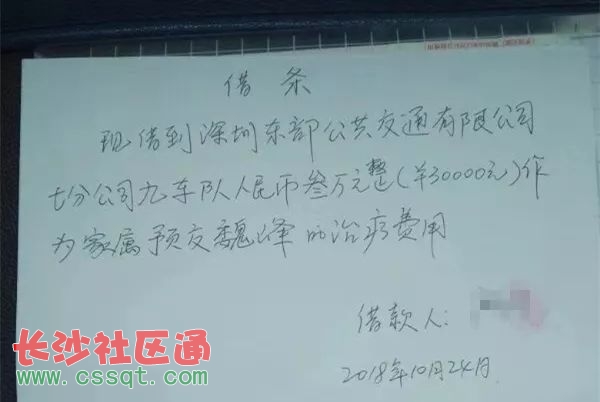 借条
现借到深圳东部公共交通有限公司
七分公司九车队人民币叁万元整(¥30000元)作
为家属预支魏峰的治疗费用
借款人:
2018年10月24日
长沙社区通
www.cssqt.com